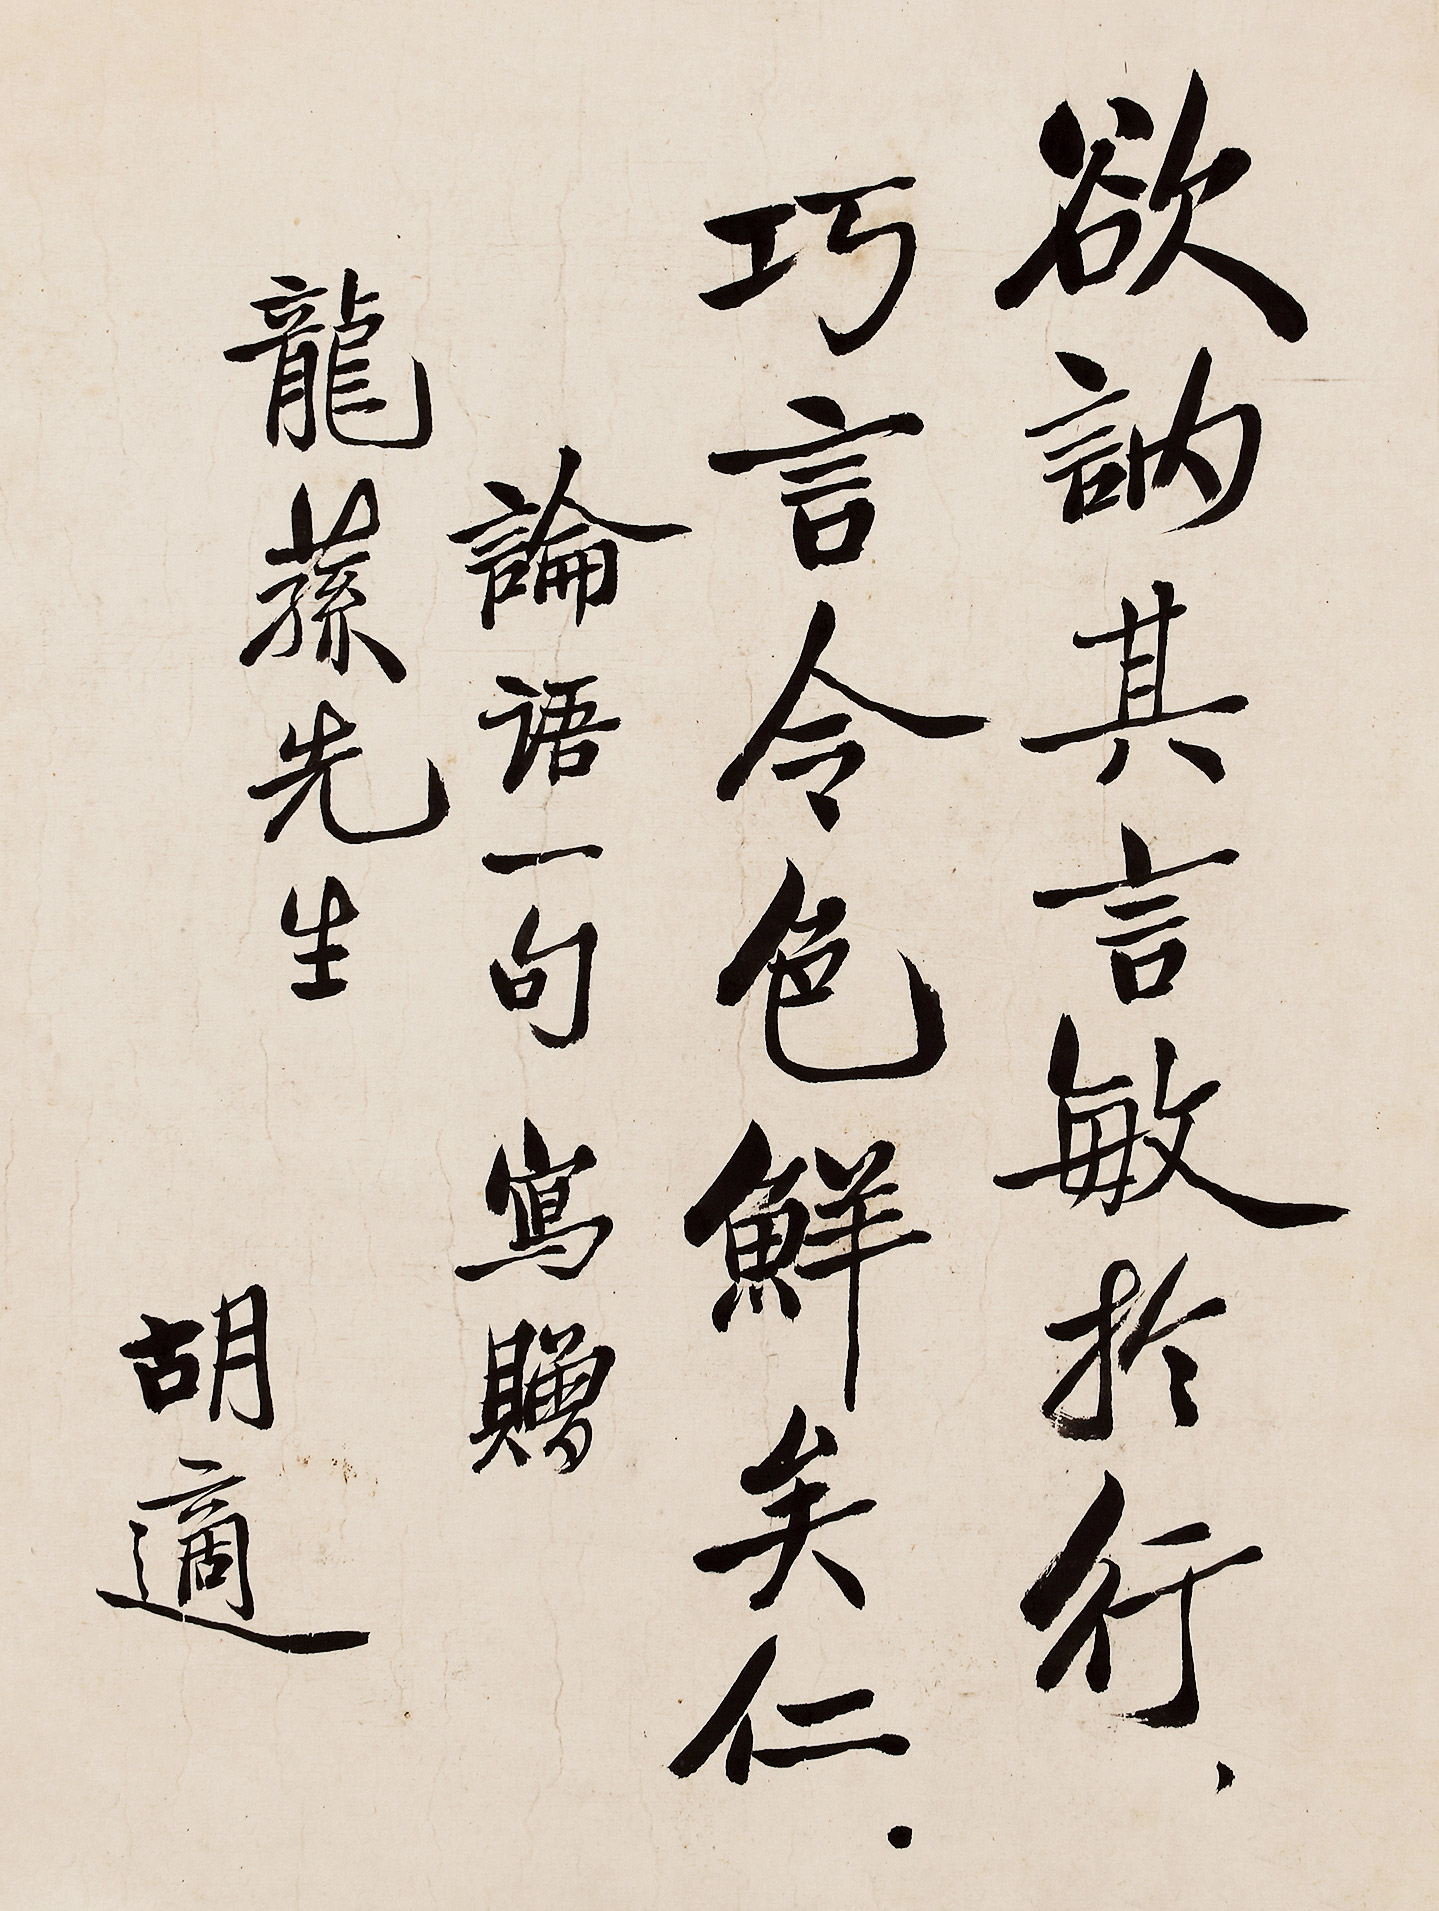 欲訥其言敏於行、
巧言令色鮮矣仁.
論語一句 寫贈
龍蓀先生
胡適